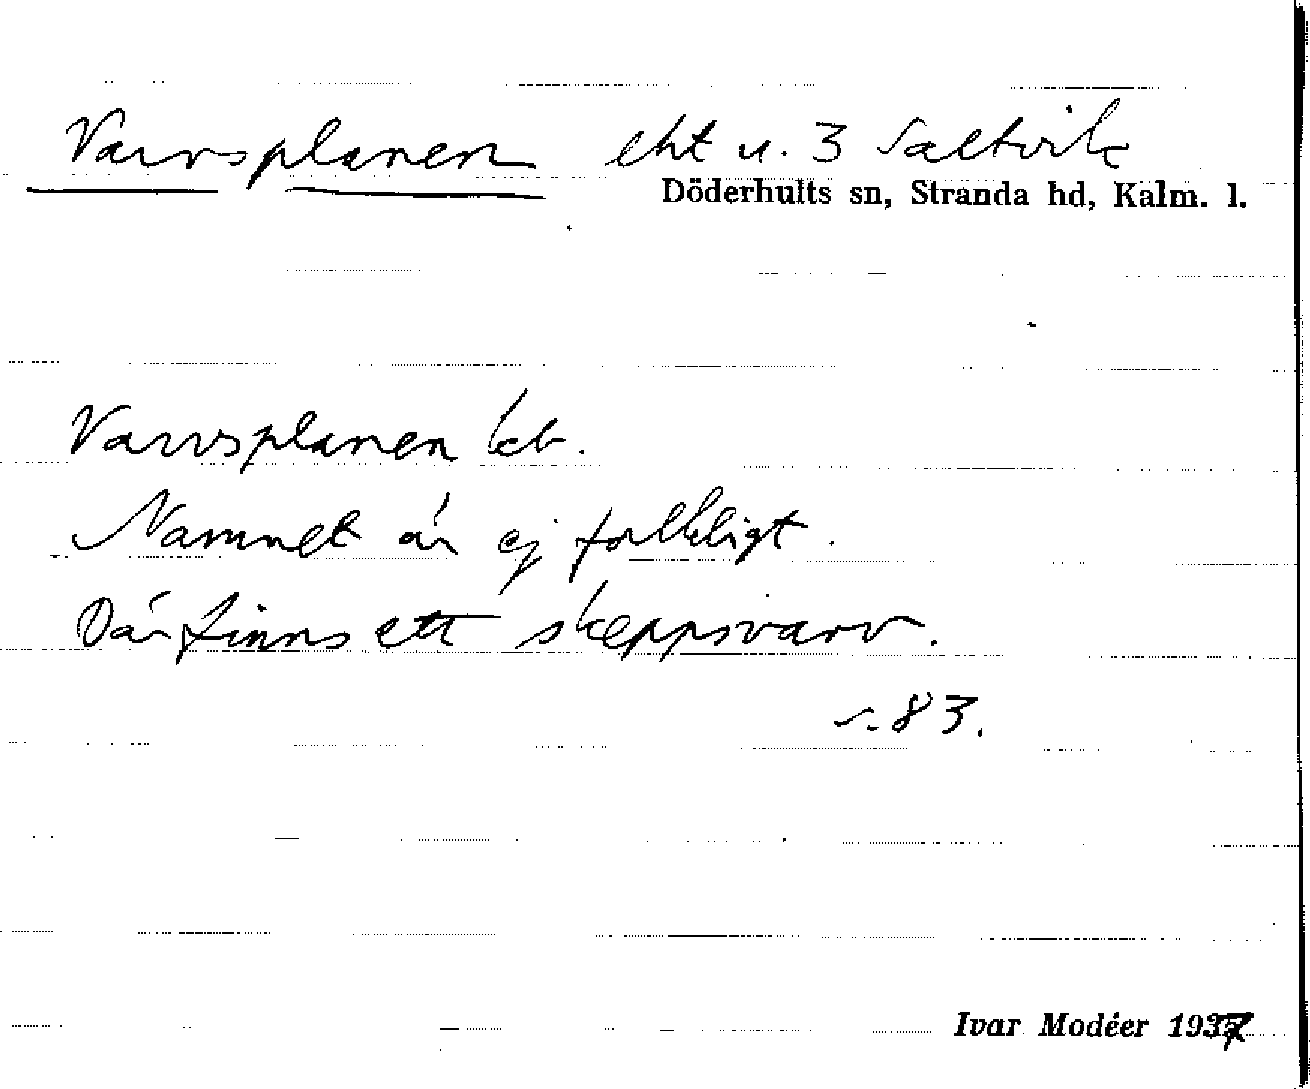 Varvsplanen eht u. 3 Saltvik
Döderhults sn, Stranda hd, Kalm. l.
Varvsplanen kb.
Namnet är ej folkligt.
Där finns ett skeppsvarv.
s. 83.
Ivar Modéer 1937